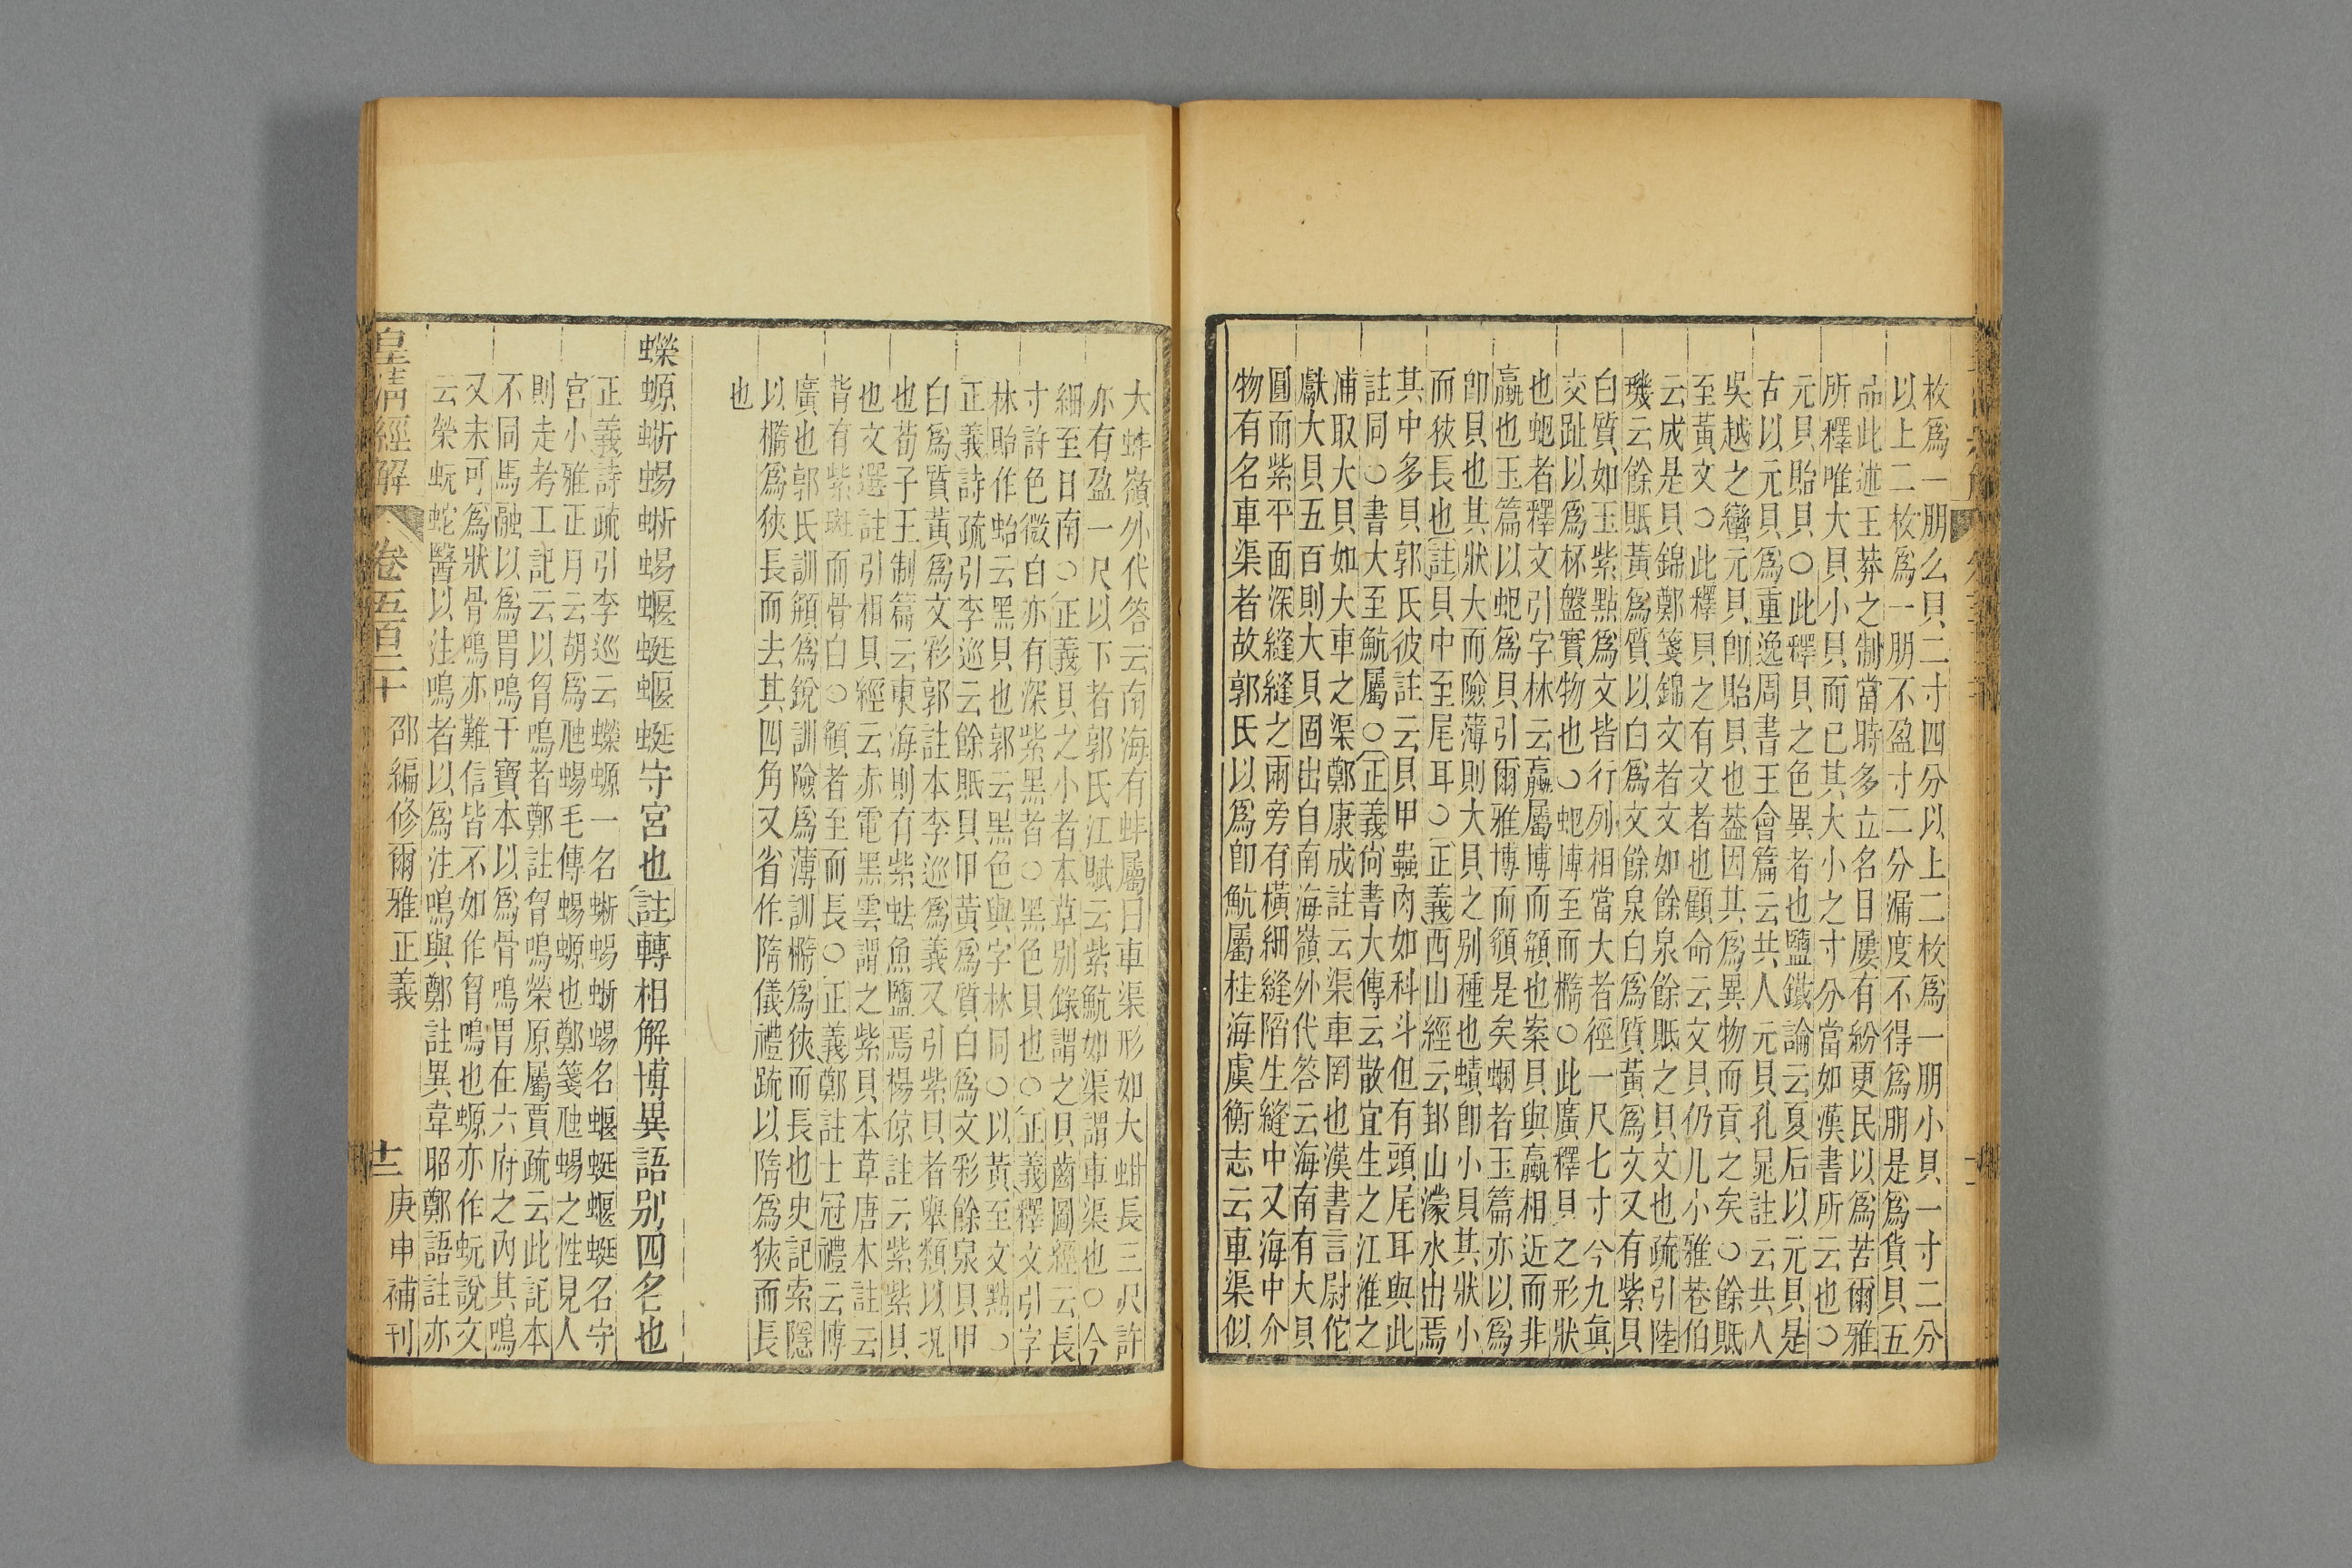 枚爲一朋么貝二寸四分以上二枚爲一朋小貝一寸二分
以上二枚爲一朋不盈寸二分漏度不得爲朋是爲貨貝五
品此述王莽之制當時多立名目屢有紛更民以爲苦爾雅
所釋唯大貝小貝而已其大小之寸分當如漢書所云也○
元貝貽貝○此釋貝之色異者也鹽鐵論云夏后以元貝是
古以元貝爲重逸周書王會篇云共人元貝孔晁註云共人
吳越之蠻元貝卽貽貝也葢因其爲異物而貢之矣○餘貾
至黃文○此釋貝之有文者也顧命云文貝仍几小雅巷伯
云成是貝錦鄭箋錦文者文如餘泉餘貾之貝文也疏引陸
璣云餘貾黃爲質以白爲文餘泉白爲質黃爲文又有紫貝
白質如玉紫點爲文皆行列相當大者徑一尺七寸今九眞
交趾以爲杯盤寶物也○蚆博至而橢○此廣釋貝之形狀
也蚆者釋文引字林云蠃屬博而頯也案貝與蠃相近而非
蠃也玉篇以蚆爲貝引爾雅博而頯是矣蜠者玉篇亦以爲
卽貝也其狀大而險薄則大貝之別種也蟦卽小貝其狀小
而狹長也註貝中至尾耳○正義西山經云邽山濛水出焉
其中多貝郭氏彼註云貝甲蟲肉如科斗但有頭尾耳與此
註同○書大至魧屬○正義尙書大傳云散宜生之江淮之
浦取大貝如大車之渠鄭康成註云渠車罔也漢書言尉佗
獻大貝五百則大貝固出自南海嶺外代答云海南有大貝
圓而紫平面深縫縫之兩旁有橫細縫陷生縫中又海中介
物有名車渠者故郭氏以爲卽魧屬桂海虞衡志云車渠似
大蚌嶺外代答云南海有蚌屬曰車渠形如大蚶長三尺許
亦有盈一尺以下者郭氏江賦云紫魧如渠謂車渠也○今
細至日南○正義貝之小者本草別錄謂之貝齒圖經云長
寸許色微白亦有深紫黑者○黑色貝也○正義釋文引字
林貽作蛤云黑貝也郭云黑色與字林同○以黃至文點○
正義詩疏引李巡云餘貾貝甲黃爲質白爲文彩餘泉貝甲
白爲質黃爲文彩郭註本李巡爲義又引紫貝者舉類以況
也荀子王制篇云東海則有紫蚨魚鹽焉楊倞註云紫紫貝
也文選註引相貝經云赤電黑雲謂之紫貝本草唐本註云
背有紫斑而骨白○頯者至而長○正義鄭註士冠禮云博
廣也郭氏訓頯爲銳訓險爲薄訓橢爲狹而長也史記索隱
以橢爲狹長而去其四角又省作隋儀禮疏以隋爲狹而長
也
蠑螈蜥蜴蜥蜴蝘蜓蝘蜓守宮也註轉相解博異語別四名也
正義詩疏引李巡云蠑螈一名蜥蜴蜥蜴名蝘蜓蝘蜓名守
宮小雅正月云胡爲虺蜴毛傳蜴螈也鄭箋虺蜴之性見人
則走考工記云以胷鳴者鄭註胷鳴榮原屬賈疏云此記本
不同馬融以爲胃鳴干寶本以爲骨鳴胃在六府之內其鳴
又未可爲狀骨鳴亦難信皆不如作胷鳴也螈亦作蚖說文
云榮蚖蛇醫以注鳴者以爲注鳴與鄭註異韋昭鄭語註亦
皇淸經解 卷五百二十 邵編修爾雅正義 十二 庚申補刊